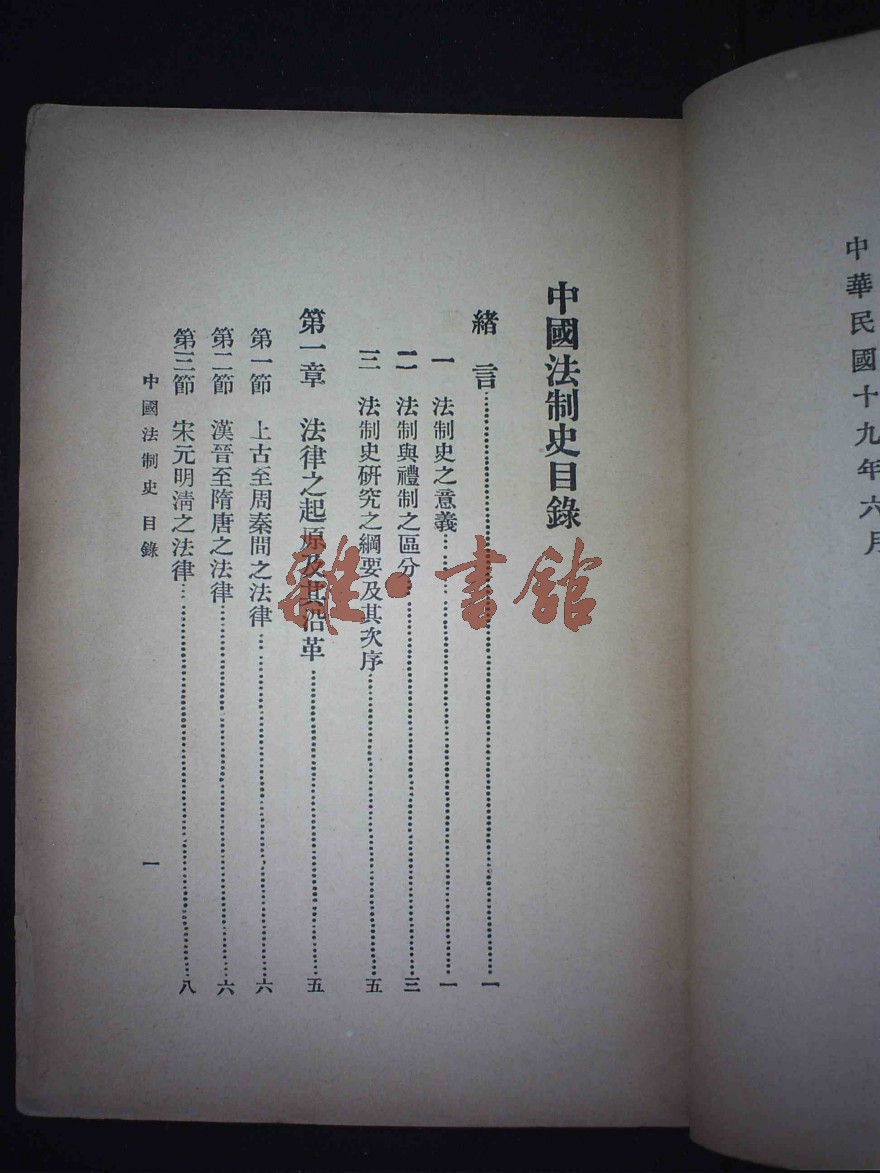 中華民國十九年六月
中國法制史目錄
緒言……………………一
一 法制史之意義……………………一
二 法制與禮制之區分……………………三
三 法制史研究之綱要及其次序……………………五
第一章 法律之起原及其沿革……………………五
第一節 上古至周秦間之法律……………………六
第二節 漢晉至隋唐之法律……………………六
第三節 宋元明淸之法律……………………八
中國法制史 目錄 一
雜·書館